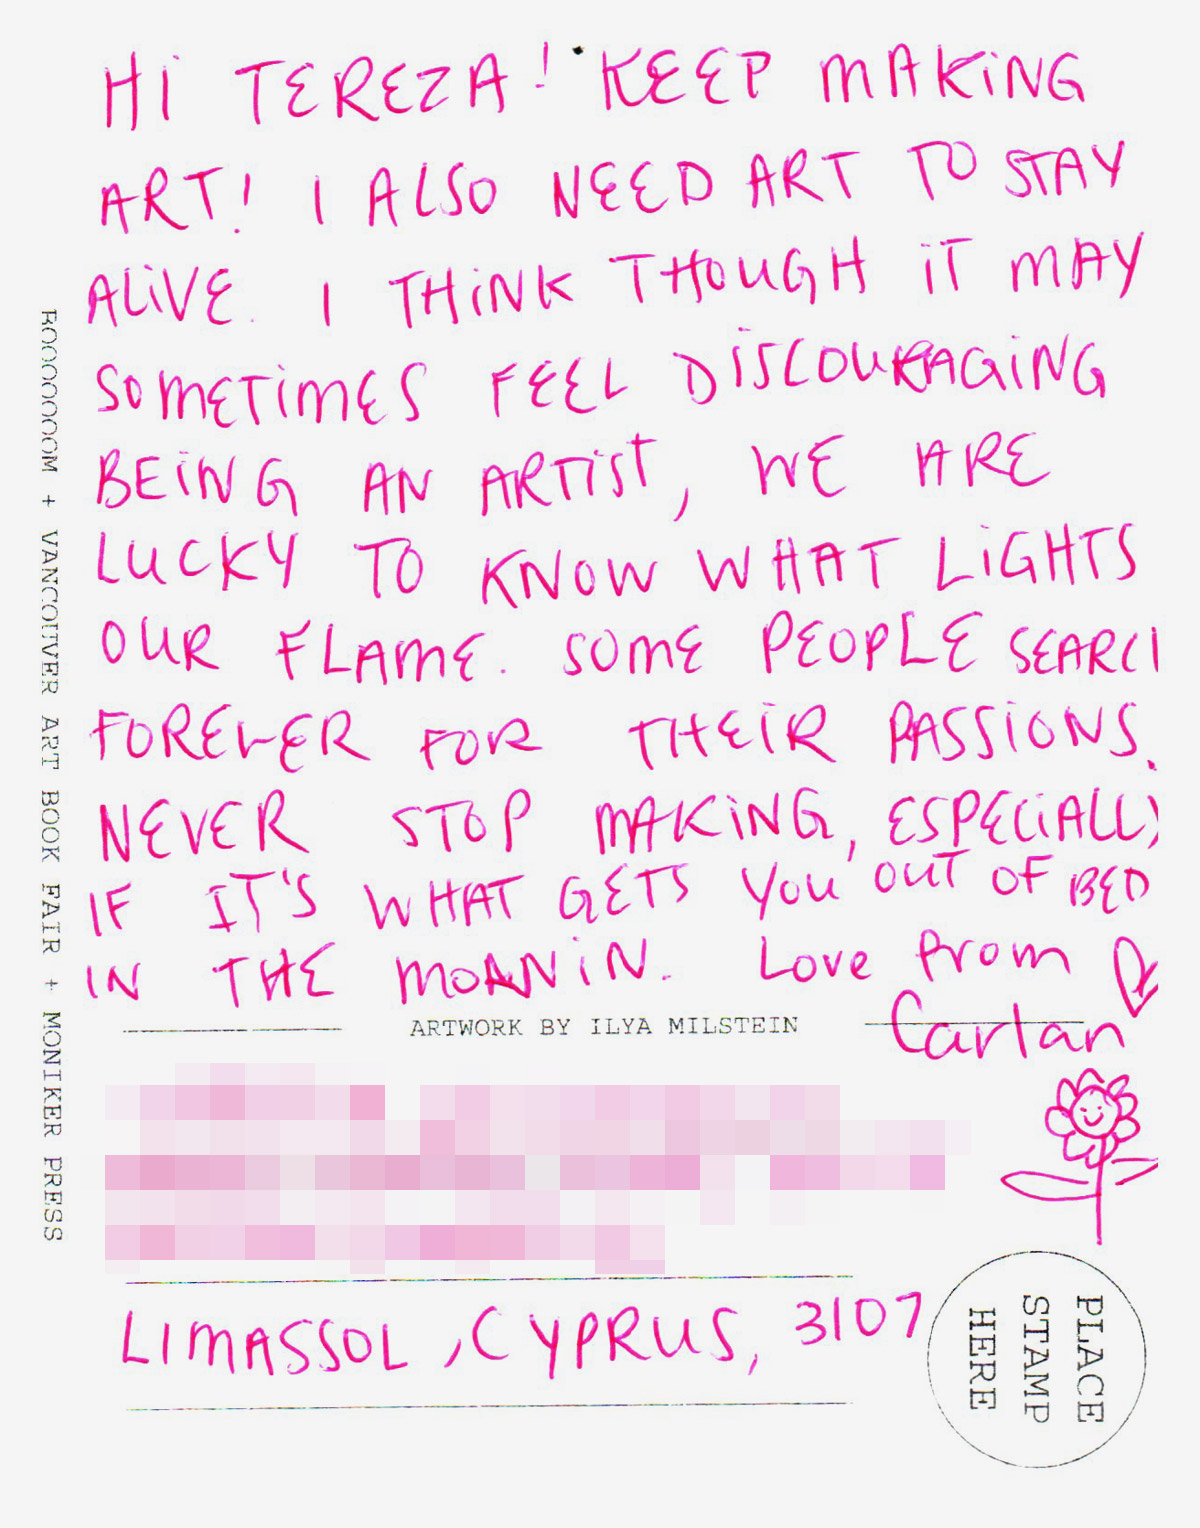 HI TEREZA! KEEP MAKING
ART! I ALSO NEED ART TO STAY
ALIVE. I THINK THOUGH IT MAY
SOMETIMES FEEL DISCOURAGING
BEING AN ARTIST, WE ARE
LUCKY TO KNOW WHAT LIGHTS
OUR FLAME. SOME PEOPLE SEARCH
FOREVER FOR THEIR PASSIONS.
NEVER STOP MAKING, ESPECIALLY
IF IT'S WHAT GETS YOU OUT OF BED
IN THE MORNIN. Love from
Cartan
ARTWORK BY ILYA MILSTEIN
LIMASSOL, CYPRUS, 3107
PLACE
STAMP
HERE
BOOOOOOOM + VANCOUVER ART BOOK FAIR + MONIKER PRESS